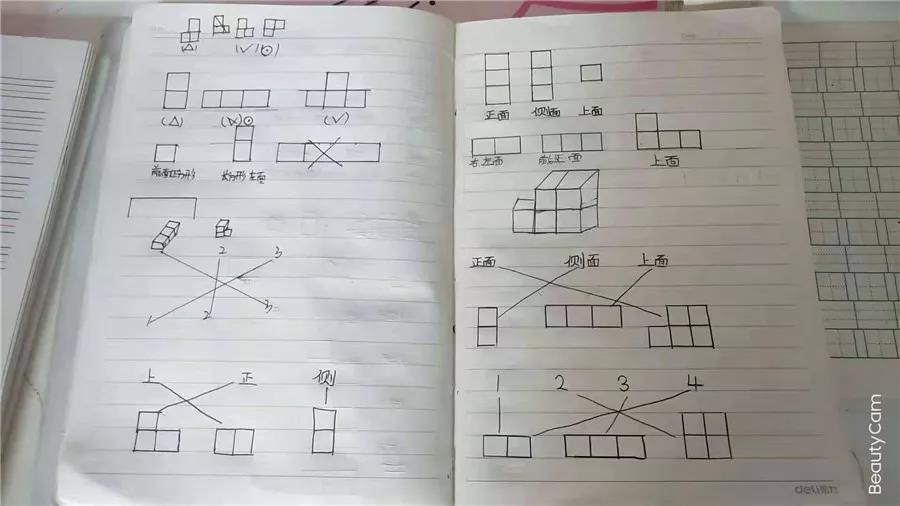 (△) (√)(⊙)
(△) (×)⊙ (√)
前面正方形 长方形左面
2 3
1 2 3
上 正 侧
正面 侧面 上面
上面
正面 侧面 上面
1 2 3 4
deli
BeautyCam